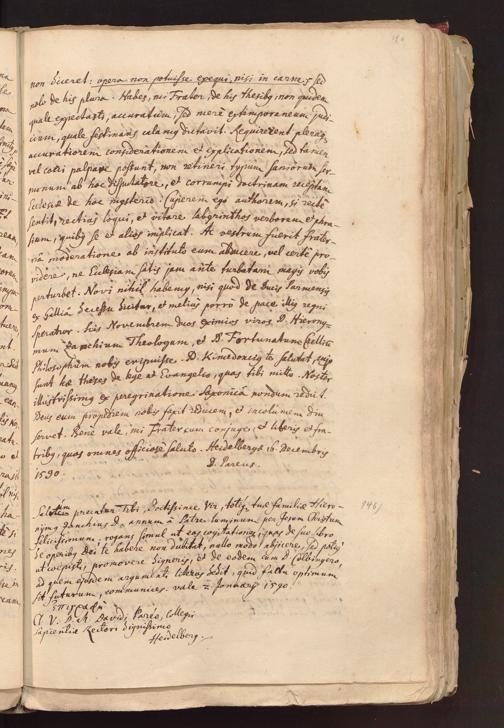 non diceret: opera non potuisse exequi, nisi in carne; sed
nolo de his plura. Habes, mi Frater, de his thesibus, non quidem
quale expectasti, accuratum, sed mere extemporaneum judi-
cium, quale festinans calamus dictavit. Requirerent pleraque
accuratiorem considerationem et explicationem, sed tamen
vel coeci palpare possunt, non retineri typum sanorum ser-
monum ab hoc disputatore, et corrumpi doctrinam receptam
Ecclesiae de hoc mysterio. Cuperem ego authorem, si recte
sentit, rectius loqui, et vitare labyrinthos verborum et phra-
sium, quibus se et alios implicat. At vestrum fuerit frater-
na moderatione ab instituto eum abducere, vel certe pro-
videre, ne Ecclesiam satis jam ante turbatam magis vobis
perturbet. Novi nihil habemus, nisi quod de Ducis Parmensis
ex Gallia decessu dicitur, et melius porro de pace illius regni
speratur. Hic Novembrem duos eximios viros D. Hierony-
mum Zanchium Theologum, et D. Fortunatum Crellium
Philosophum nobis eripuisse. D. Kimedoncius te salutat, cujus
sunt hae theses de lege et Evangelio, quas tibi mitto. Noster
illustrissimus ex peregrinatione Saxonica nondum rediit.
Deus eum propediem nobis faxit reducem, et incolumem diu
servet. Bene vale, mi Frater cum conjuge, et liberis et fra-
tribus, quos omnes officiose saluto. Heidelbergae 16 Decembris
1590.
D. Pareus.
Salutem precatur Tibi, Doctissime Vir, totique tuae familiae Hiero-
nymus Zanchius D. annum a Patre luminum per Jesum Christum
felicissimum, rogans simul ut eas cogitationes, quas de suo libro
de operibus Dei te habere non dubitat, nullo modo abjicere, sed potius
ut coepisti, promovere digneris, et de eodem cum D.
ad quem ejusdem argumenti literas dedit, quid factu optimum
sit futurum, communices. vale 2 Januarij 1590.
ἐπιγραφή
Cl. V. D. M. Davidi Pareo, Collegii
Sapientiae Rectori dignissimo
Heidelberg.